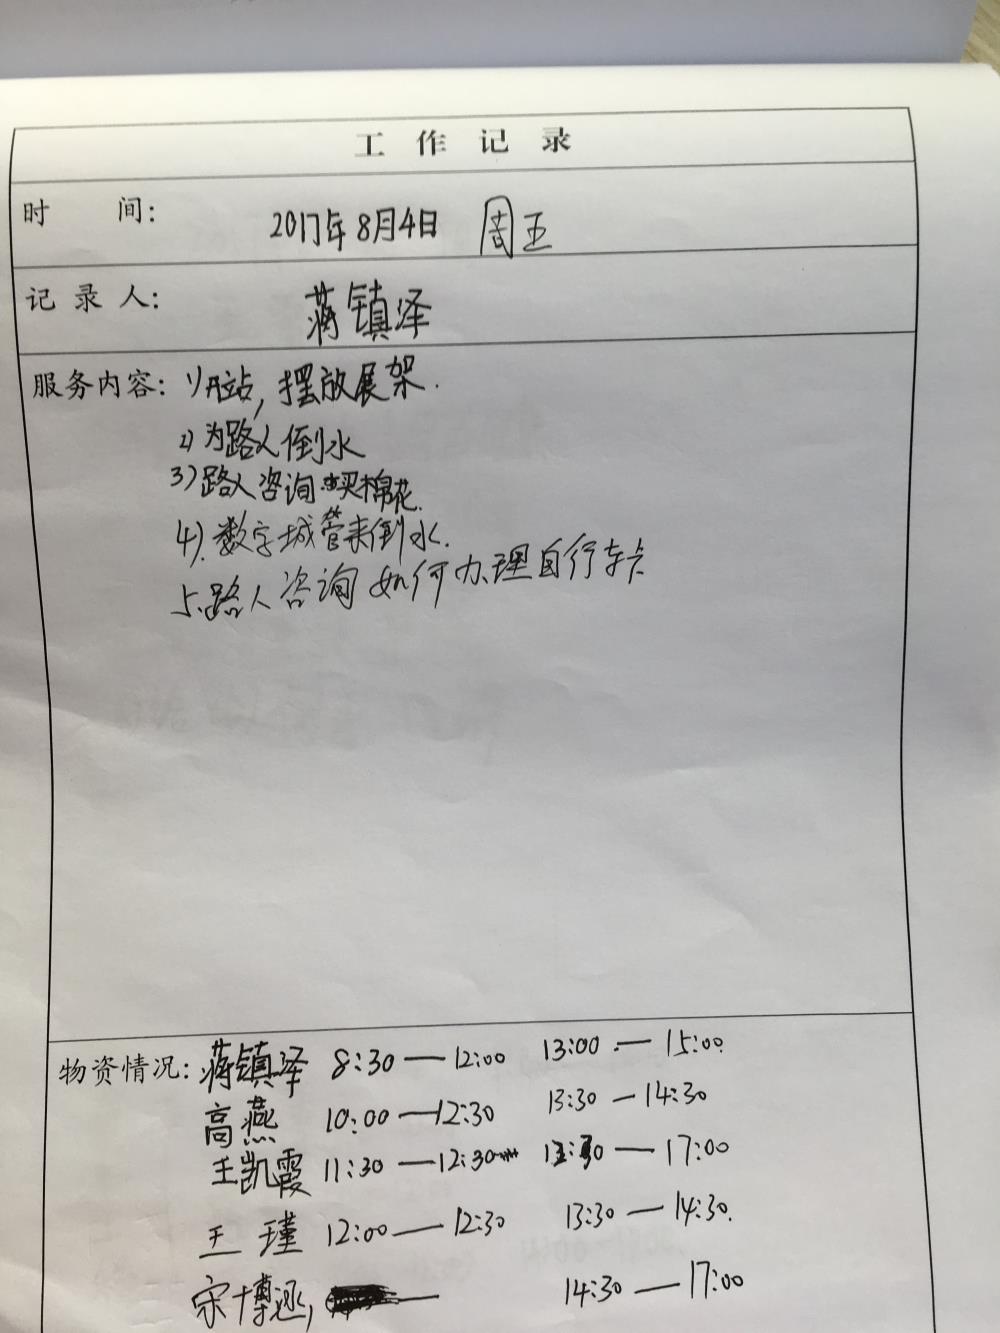 工作记录
时 间： 2017年8月4日 周五
记录人： 蒋镇泽
服务内容：1)开站，摆放展架.
2)为路人倒水
3)路人咨询 买棉花.
4).数字城管来倒水.
5.路人咨询如何办理自行车卡
物资情况：蒋镇泽 8:30—12:00 13:00—15:00
高燕 10:00—12:30 13:30—14:30
王凯霞 11:30—12:30 13:30—17:00
王瑾 12:00—12:30 13:30—14:30.
宋博涵, 14:30—17:00